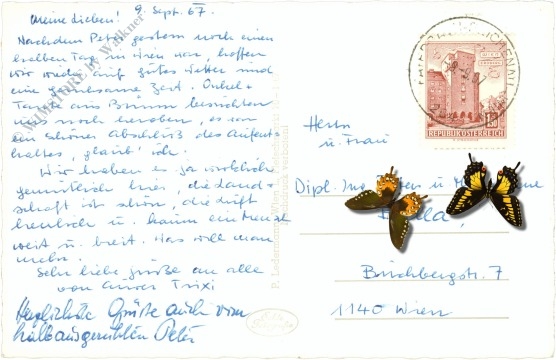 Meine Lieben! 9. Sept. 67.
Nachdem Peter gestern noch einen
halben Tag in Wien war, hoffen
wir wieder auf gutes Wetter und
eine geruhsame Zeit. Onkel +
Tante aus Brünn besuchten
uns noch heroben, es war
ein schöner Abschluß des Aufent-
haltes, glaub' ich.
Wir haben es ja wirklich
gemütlich hier, die Land-
schaft ist schön, die Luft
herrlich u. kaum ein Mensch
weit u. breit. Was will man
mehr.
Sehr liebe Grüße an alle
von Eurer Trixi
Herzlichste Grüße auch vom
halbausgeruhten Peter
Herrn
u. Frau
Dipl. Ing.
Buchbergstr. 7
1140 Wien
REPUBLIK ÖSTERREICH
1.50
P. Ledermann, Wien